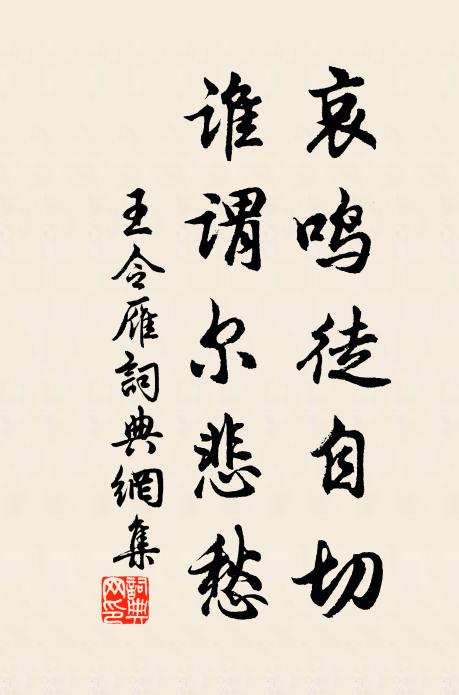 哀鸣徒自切
谁谓尔悲愁
王令雁詞典網集
詞典网印